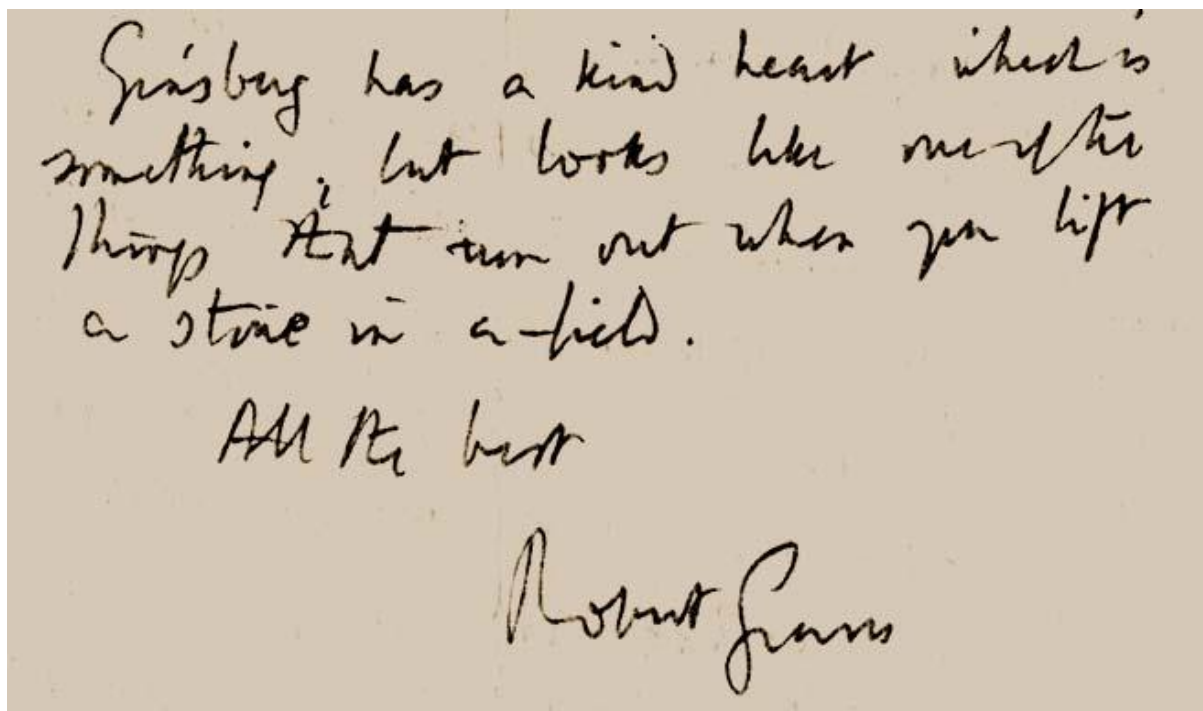 Ginsberg has a kind heart which is
something; but looks like one of the
things that run out when you lift
a stone in a field.
All the best
Robert Graves